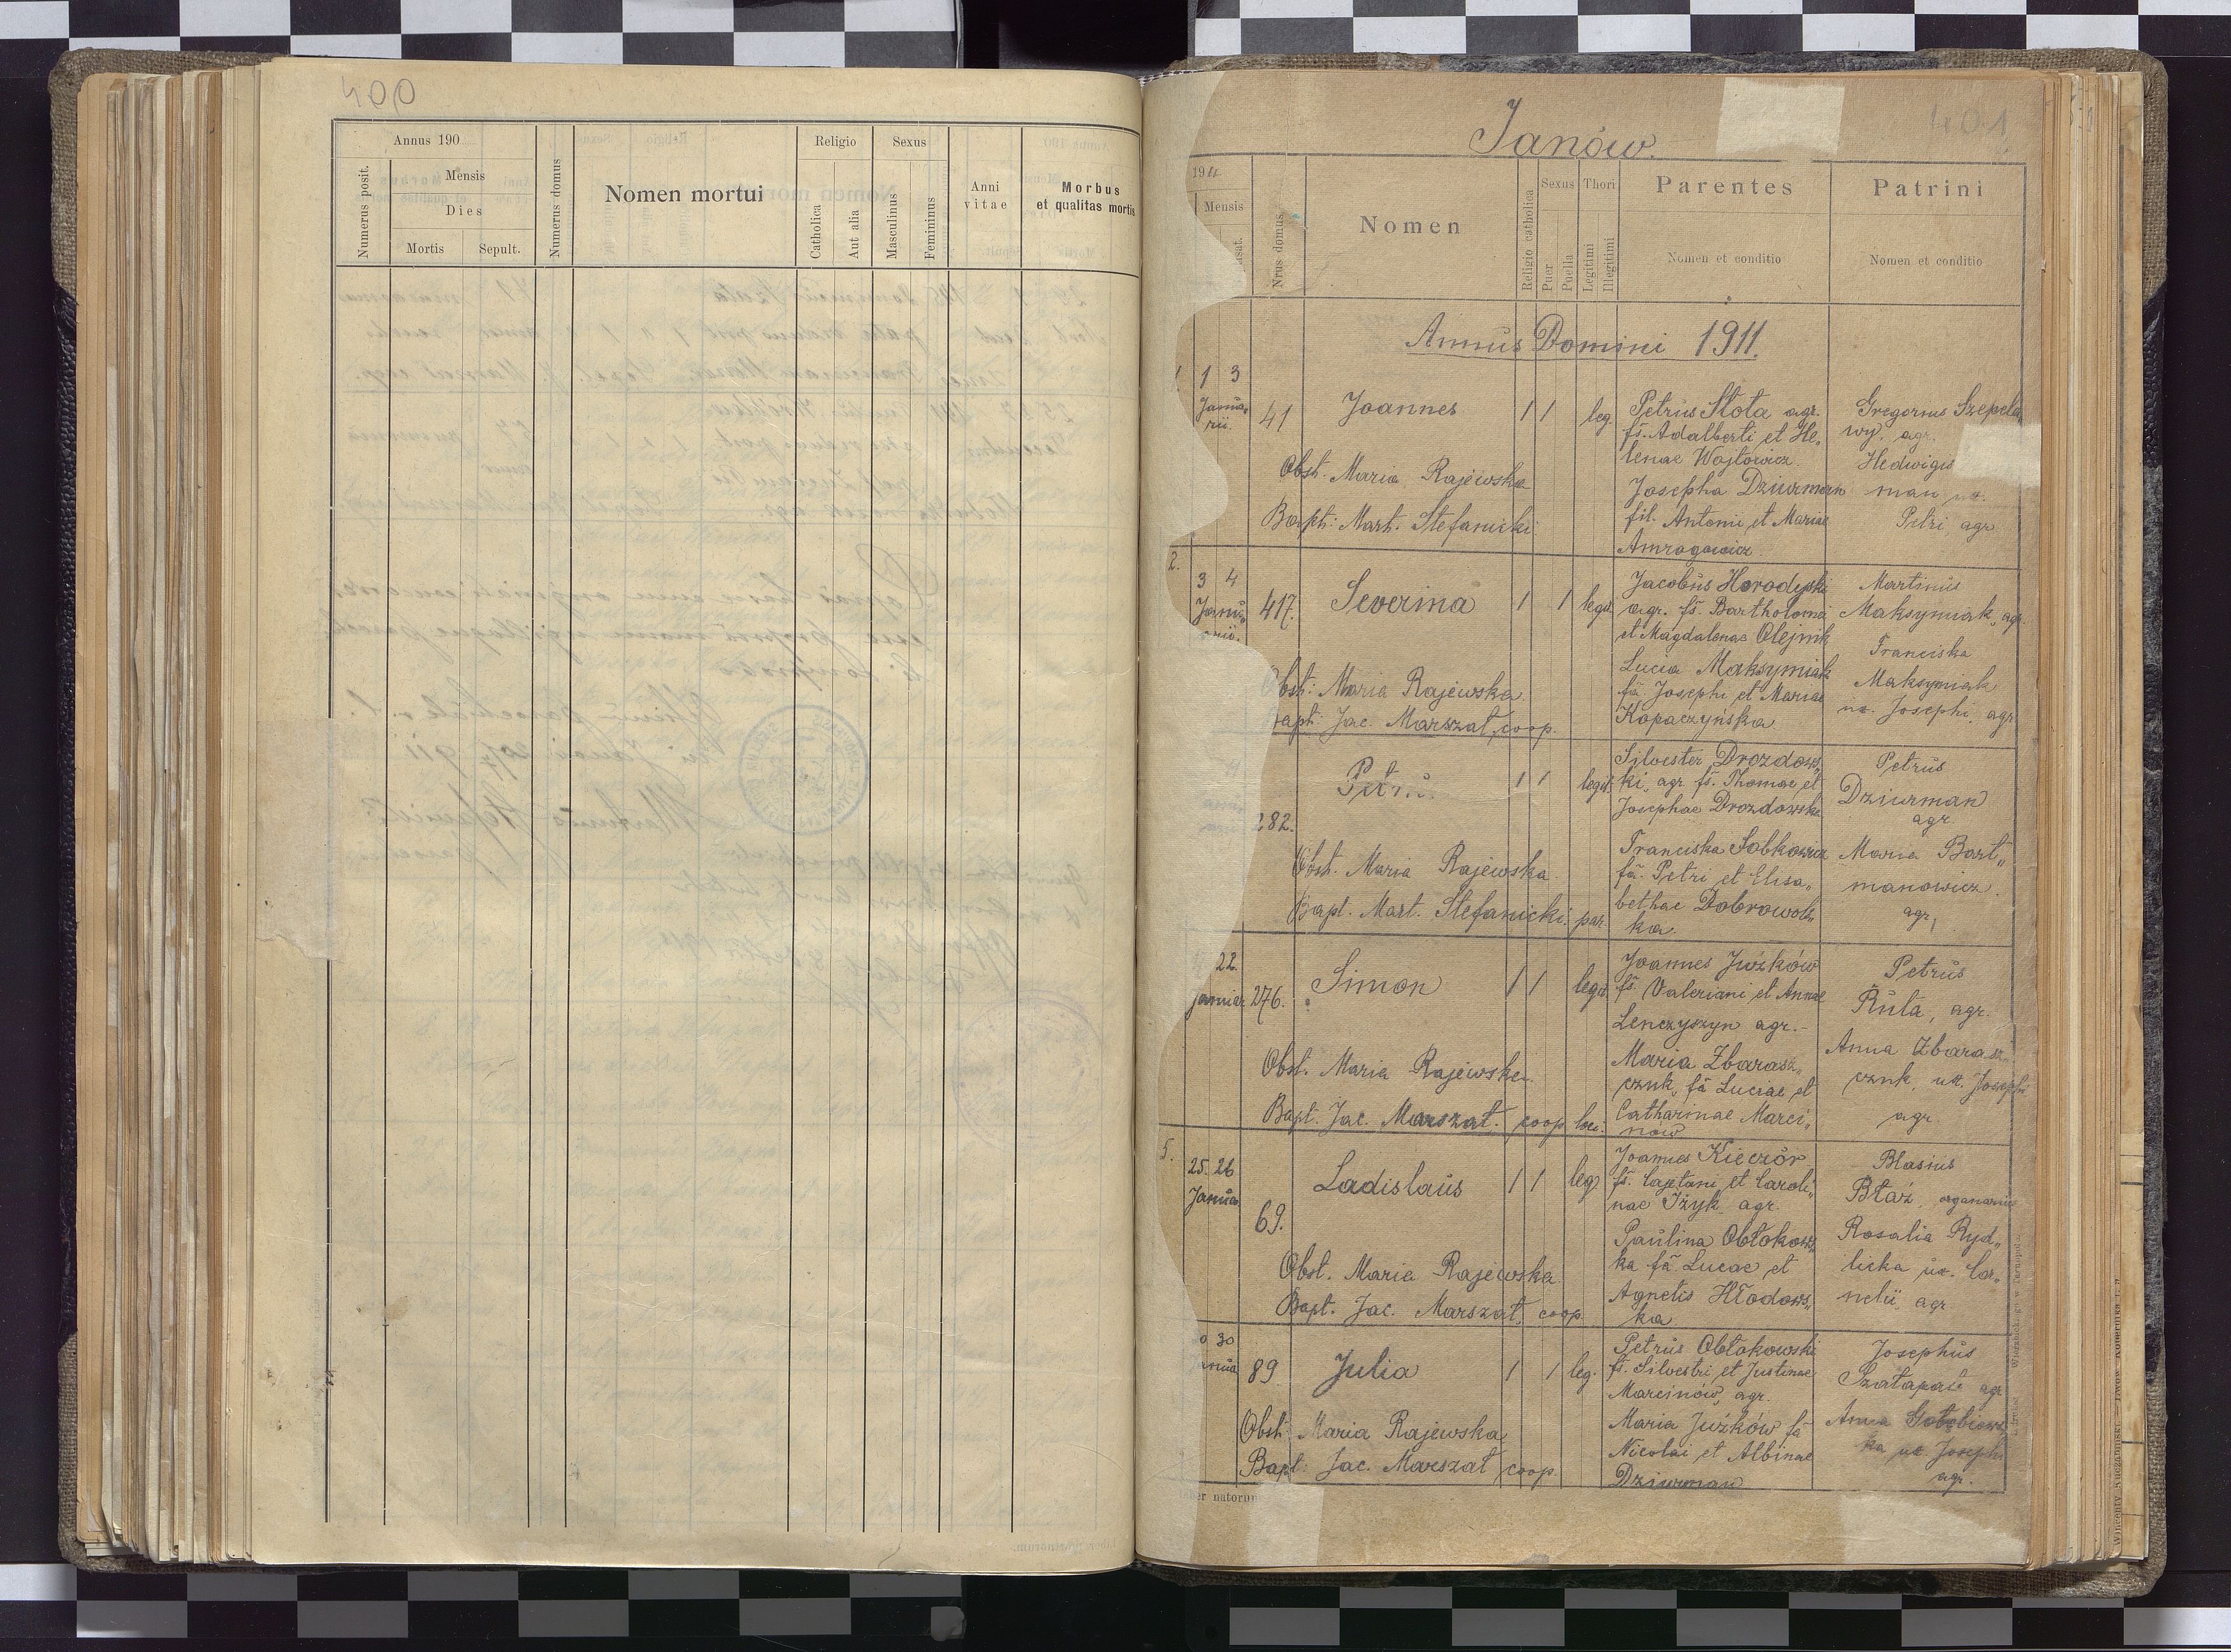 400
Annus 190
Numerus posit.
Mensis
Dies
Mortis
Sepult.
Numerus domus
Nomen mortui
Religio
Catholica
Aut alia
Sexus
Masculinus
Femininus
Anni vitae
Morbus
et qualitas mortis
401
Janów.
1911
Mensis
Nrus domus
Nomen
Religio catholica
Sexus
Puer
Puella
Thori
Legitimi
Illegitimi
Parentes
Nomen et conditio
Patrini
Nomen et conditio
Annus Domini 1911.
1 3
Janua-
rii.
41
Joannes
1 1
leg.
Petrus Słota agr.
fs. Adalberti et He„
lenae Wojtowicz
Josepha Dziurman
fil. Antonii et Mariae
Amrogowicz
Gregorius Szepela„
wy. agr.
Hedwigis
man ux.
Petri agr
Obst. Maria Rajewska
Bapt: Mart. Stefanicki
2.
3 4
Janu„
arii.
417.
Severina
1 1
legit.
Jacobus Horodyski
agr. fs. Bartholomei
et Magdalenae Olejnik
Lucia Maksymiak
fa Josephi et Mariae
Kopaczyńska
Martinus
Maksymiak, agr.
Franciska
Maksymiak
ux. Josephi, agr
Obst: Maria Rajewska
Bapt: Jac. Marszał, coop.
282.
1 1
legit.
Silvester Drozdows„
ki, agr fs. Thomae et
Josephae Drozdowska
Franciska Sobkowicz
fa Petri et Elisa„
bethae Dobrowols„
ka.
Petrus
Dziurman
agr
Maria Bart„
manowicz.
agr,
Obst. Maria Rajewska.
Bapt. Mart. Stefanicki par.
22.
januar.
276.
Simon
1 1
legit.
Joannes Juźków
fs. Valeriani et Annae
Lenczyszyn agr.-
Maria Zbarasz„
cznk, fa Luciae et
Catharinae Marci„
now
Petrus
Ruta, agr.
Anna Zbarasz„
cznk, ux. Josephi
agr.
Obst. Maria Rajewska
Bapt. Jac. Marszał. coop. loc.
5.
25. 26
Januar.
69.
Ladislaus
1 1
leg
Joannes Kieczór
fs. Cajetani et Caroli„
nae Iżyk, agr.
Paulina Obłokows„
ka fa Lucae et
Agnetis Hłodows„
ka
Blasius
Błaż, organarius
Rosalia Ryd„
licka ux. Cor„
nelii, agr
Obst. Maria Rajewska
Bapt. Jac. Marszał, coop
30
89
Julia
1 1
leg.
Petrus Obłokowski
fs. Silvestri et Justinae
Marcinów agr.
Maria Juźków fa
Nicolai et Albinae
Dziurman
Josephus
Szałapata agr
Anna Gołębiows
ka ux Josephi
agr.
Obst: Maria Rajewska
Bapt: Jac. Marszał coop